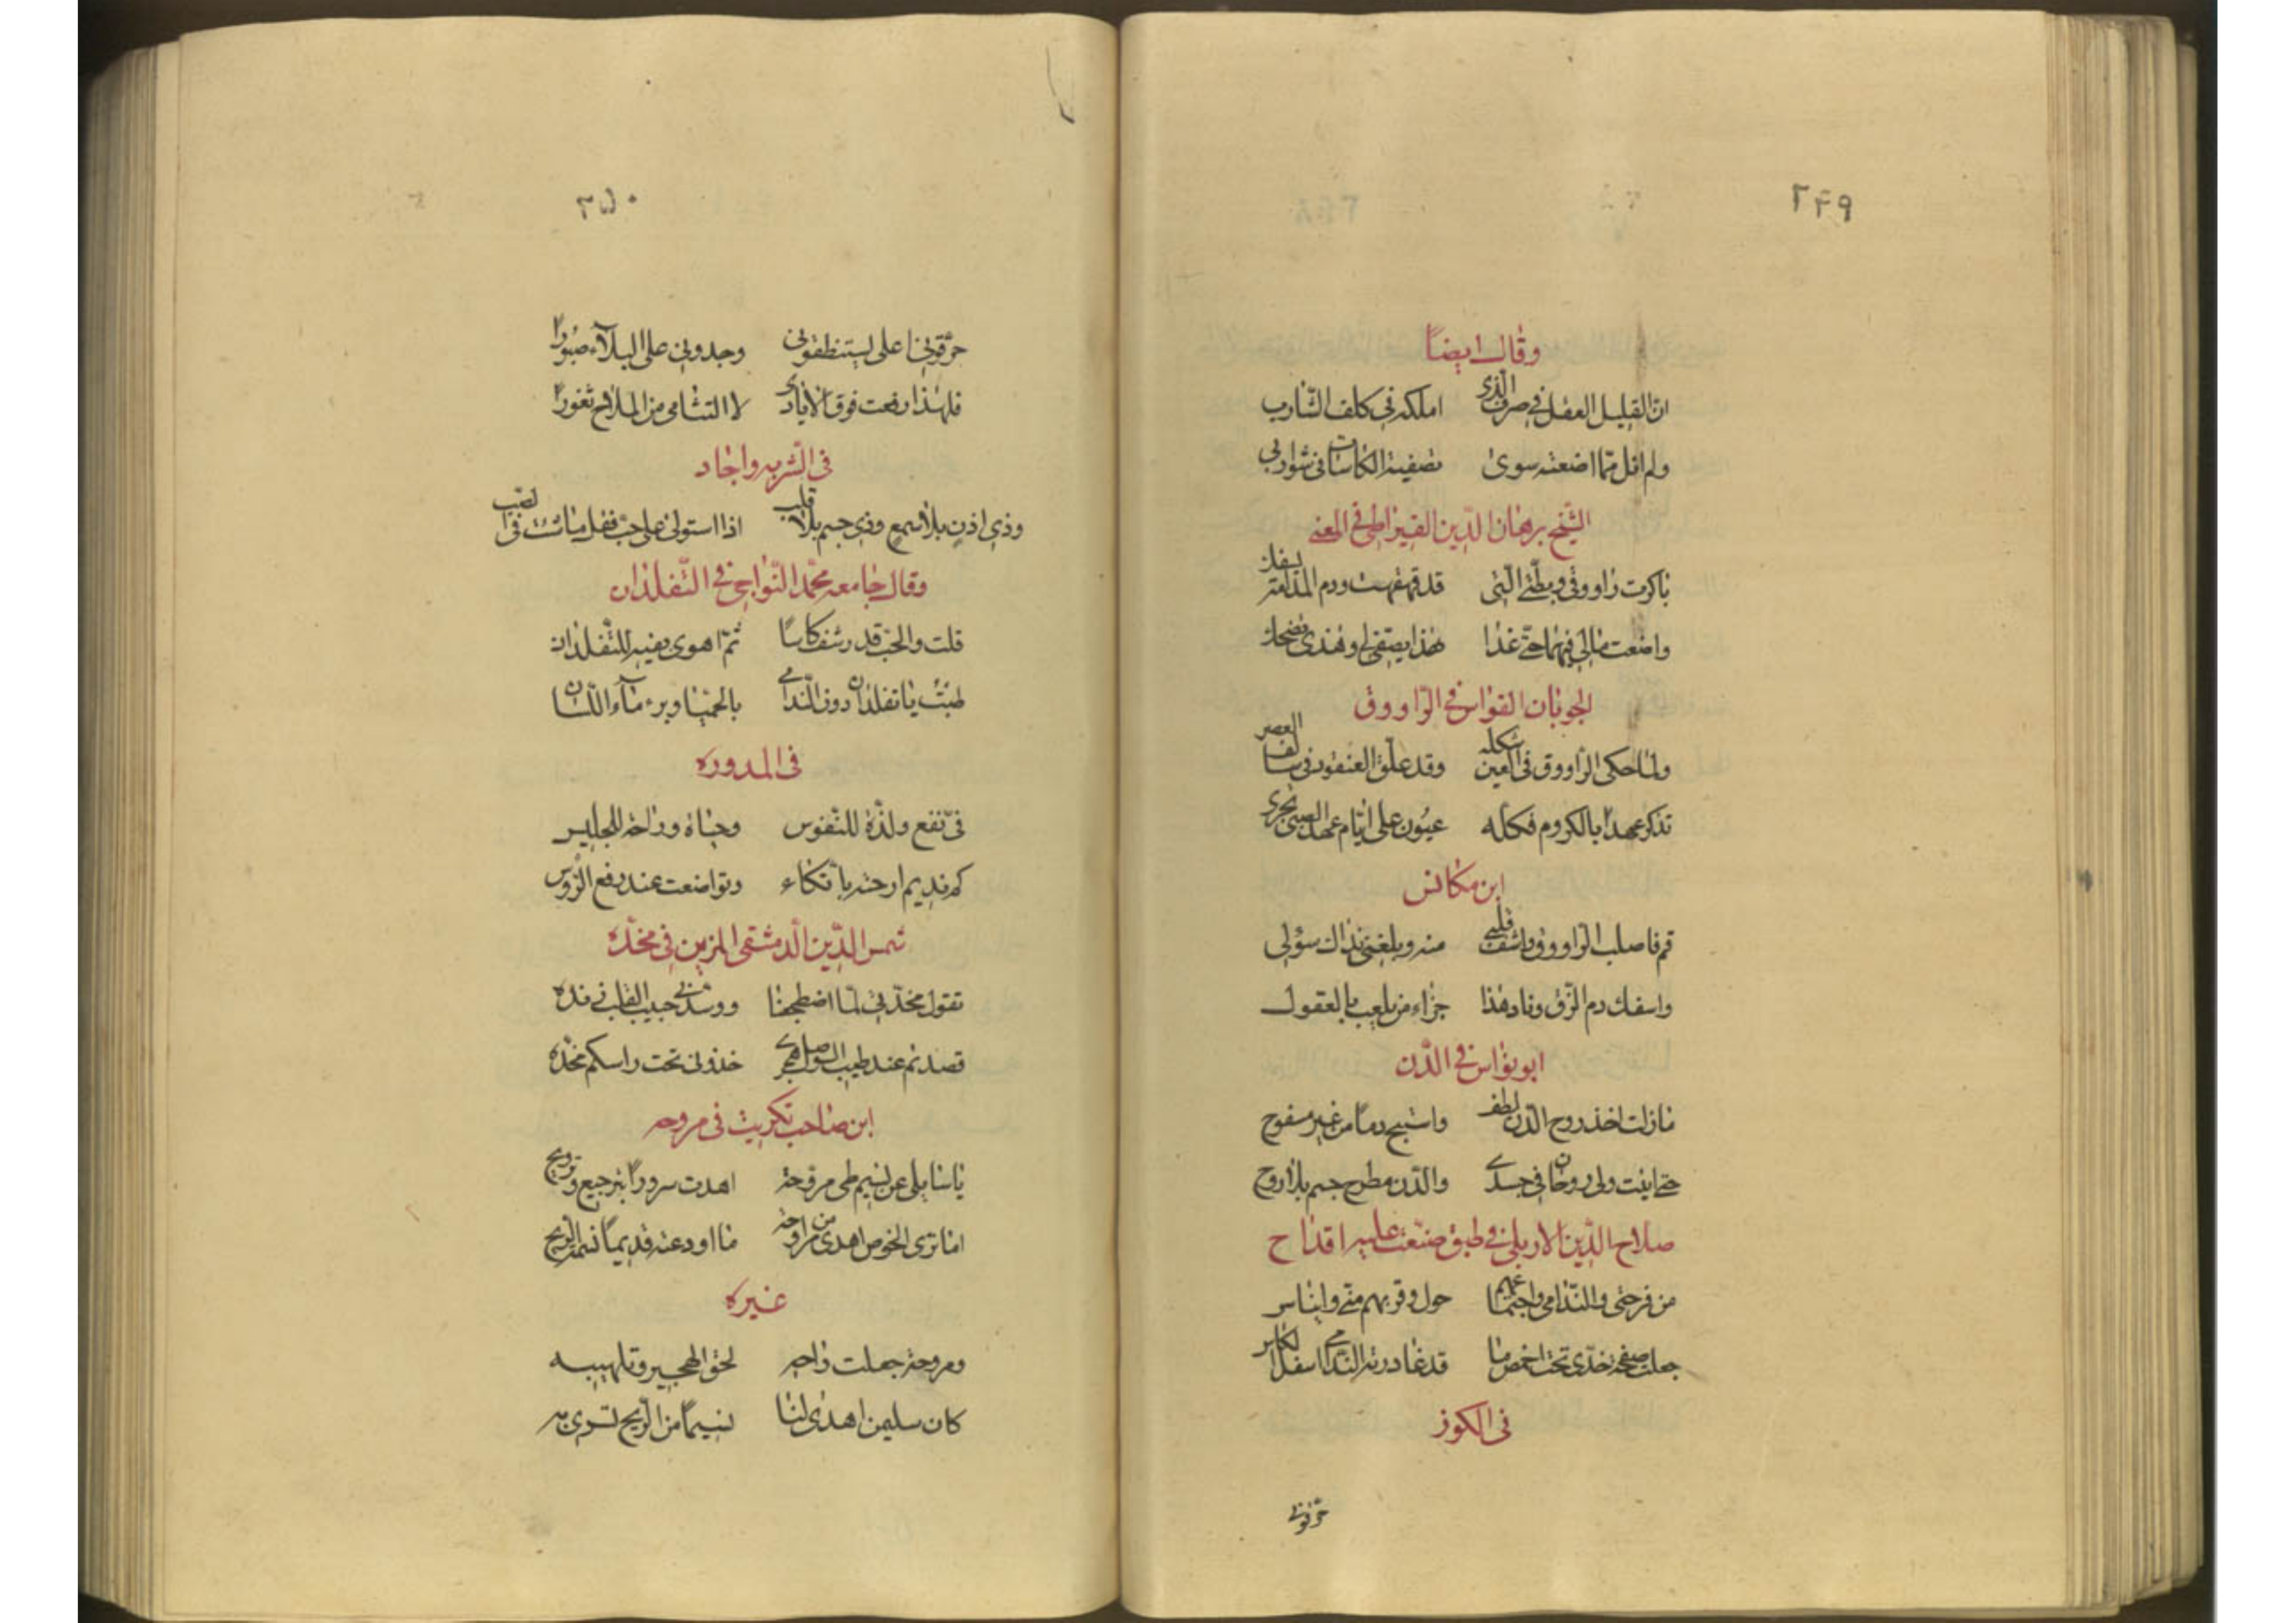 ٢٤٩
وقال ايضاً
انّ القليل العقل في صرف الّذي املكه في كلف الشّارب
ولم انل ممّا اضعته سوى تصفية الكاسات في شواربي
الشّيخ برهان الدّين القيراطي في المعنى
باكرت راووقي وبطّتي الّتي قد قهقهت ودم المدامة يسفك
واضعت مالي فيهما حتّى غدا هذا يصفّي لي وهذي تضحك
الجوبان القوّاس في الرّاووق
ولمّا حكى الرّاووق في العين شكله وقد علّق العنقود في سالف العصر
تذكّر عهداً بالكروم فكلّه عيون على ايّام عهد الصبى تجري
ابن مكانس
قم فاصلب الرّاووق واشف قلبي منه وبلّغني بذاك سؤلي
واسفك دم الزّق وناد هذا جزاء من يلعب بالعقول
ابو نواس في الدّن
مازلت اخذ روح الدّن في لطف واستبيح دماً من غير مسفوح
حتى انثنيت ولي روحان في جسدي والدّن مطرح جسم بلا روح
صلاح الدّين الاربلي في طبق صنّعت عليه اقداح
من فرحتي والنّدامى واجتماعهم حول وقربهم منّي وايناس
جعلت صفحة خدّي تحت اخمص ما قد غادرته النّدامى اسفل الكاس
في الكوز
حرّقوني
٣٥٠
حرّقوني على يستنظفوني وجدوني على البلآء صبورا
فلهذا رفعت فوق الايادي لا التثامي من الملاح ثغورا
في الشّربه واجاد
وذي اذن بلا سمع وذي جسم بلا قلب اذا استولى على حبّ فقل ما شئت في الصّب
وقال جامعه محمّد النّواجي في التّفلذان
قلت والحبّ قد رشف كاساً ثمّ اهوى بفيه للتّفلذان
طبت يا تفلذان دون النّدامى بالحميّا وبرء مآء اللسان
في المدوره
فيّ نفع ولذّة للنّفوس وحياة وراحة للجليس
كم نديم ارحته باتّكاء وتواضعت عند رفع الرّؤس
شمس الدّين الدمشقي المزين في مخدّه
تقول مخدّتي لمّا اضطجعنا ووسّدني حبيب القلب زنده
قصدتم عند طيب الوصل هجري خذوني تحت راسكم مخدّه
ابن صاحب تكريت في مروحه
يا سايلي عن نسيم طي مروحة اهدت سروراً بترجيع وترويح
اما ترى الخوص اهدى من مراوحة ما اودعته قديماً نسمة الرّيح
غيره
ومروحة جعلت راحه لحق الهجير وتلهيبه
كان سليمن اهدى لنا نسيماً من الرّيح تسري به